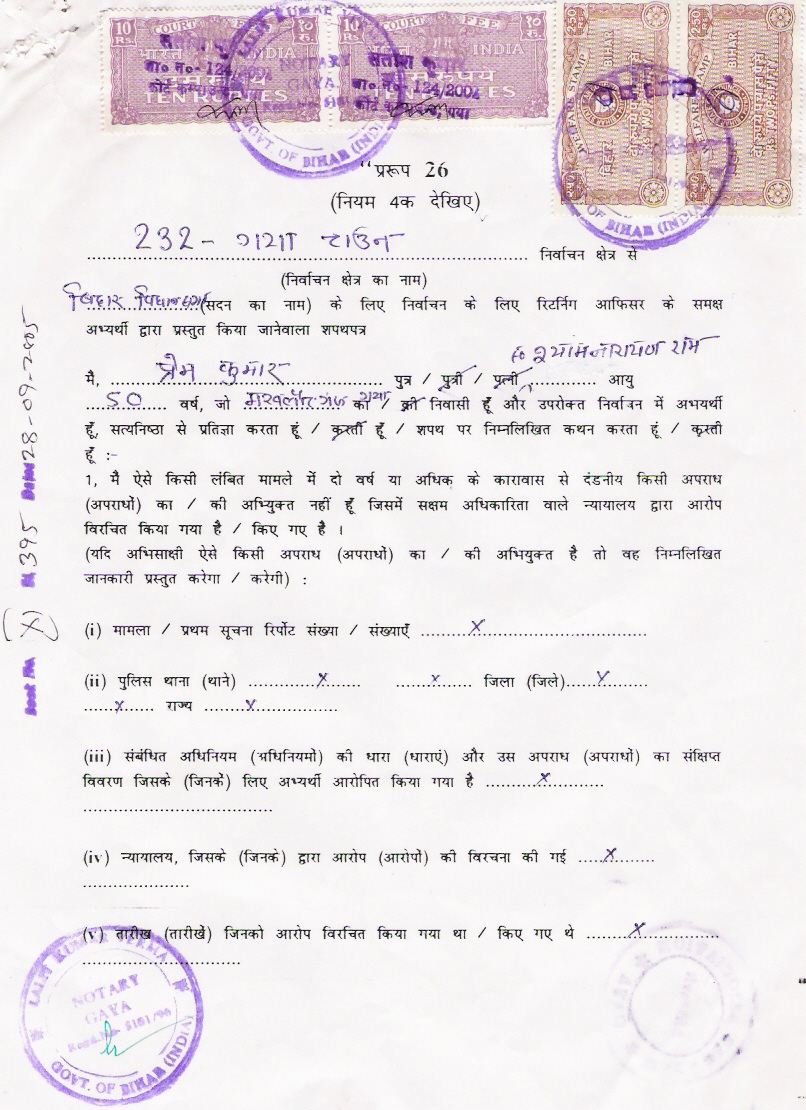 10 Rs. COURT FEE १० रु.
भारत INDIA
TEN RUPEES
10 Rs. COURT FEE १० रु.
भारत INDIA
रुपये RUPEES
सतीश कुमार
ला० न०- 124/2004
NOTARY
GAYA
GOVT. OF BIHAR (INDIA)
2.50 WELFARE STAMP BIHAR
बिहार
2.50 WELFARE STAMP BIHAR
बिहार
OF BIHAR (INDIA)
"प्ररूप 26
(नियम 4क देखिए)
232- गया टाउन निर्वाचन क्षेत्र से
(निर्वाचन क्षेत्र का नाम)
बिहार विधान सभा (सदन का नाम) के लिए निर्वाचन के लिए रिटर्निग आफिसर के समक्ष
अभ्यर्थी द्वारा प्रस्तुत किया जानेवाला शपथपत्र
श्यामनारायण राम
मै, प्रेम कुमार पुत्र / पुत्री / पत्नी आयु
50 वर्ष, जो मखलौटगंज गया का / की निवासी हूँ और उपरोक्त निर्वाचन में अभयर्थी
हूँ, सत्यनिष्ठा से प्रतिज्ञा करता हूं / करती हूँ / शपथ पर निम्नलिखित कथन करता हूं / करती
हूँ :-
1, मै ऐसे किसी लंबित मामले में दो वर्ष या अधिक के कारावास से दंडनीय किसी अपराध
(अपराधों) का / की अभियुक्त नहीं हूँ जिसमें सक्षम अधिकारिता वाले न्यायालय द्वारा आरोप
विरचित किया गया है / किए गए है ।
(यदि अभिसाक्षी ऐसे किसी अपराध (अपराधों) का / की अभियुक्त है तो वह निम्नलिखित
जानकारी प्रस्तुत करेगा / करेगी) :
(i) मामला / प्रथम सूचना रिर्पोट संख्या / संख्याएँ X
(ii) पुलिस थाना (थाने) X X जिला (जिले) X
X राज्य X
(iii) संबंधित अधिनियम (अधिनियमों) की धारा (धाराएं) और उस अपराध (अपराधों) का संक्षिप्त
विवरण जिसके (जिनके) लिए अभ्यर्थी आरोपित किया गया है X
(iv) न्यायालय, जिसके (जिनके) द्वारा आरोप (आरोपों) की विरचना की गई X
(v) तारीख (तारीखें) जिनको आरोप विरचित किया गया था / किए गए थे X
NOTARY
GAYA
GOVT. OF BIHAR (INDIA)
(X) 395 28-09-2005